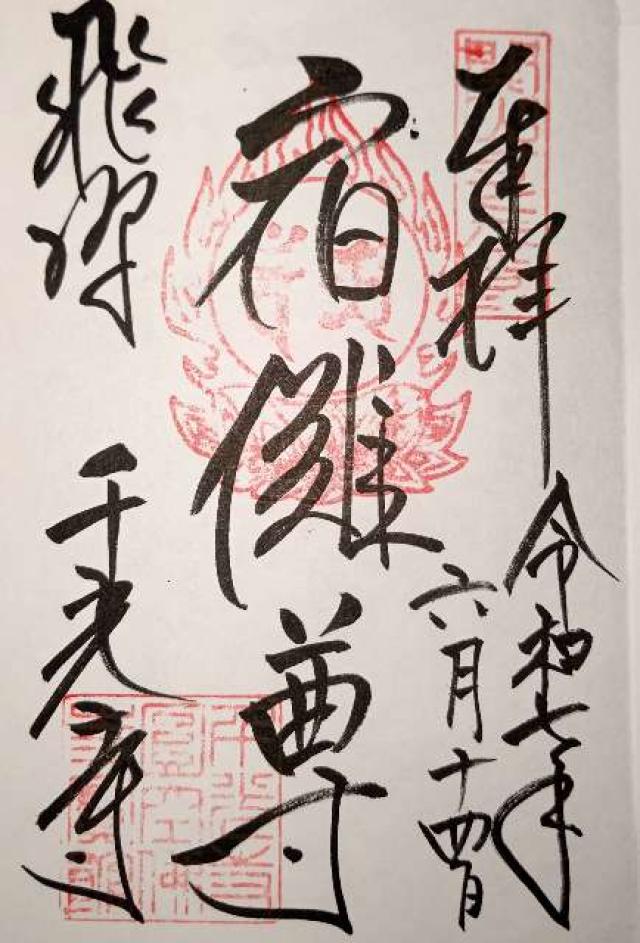 奉拝
令和七年
六月十四日
宿儺尊
飛騨
千光寺